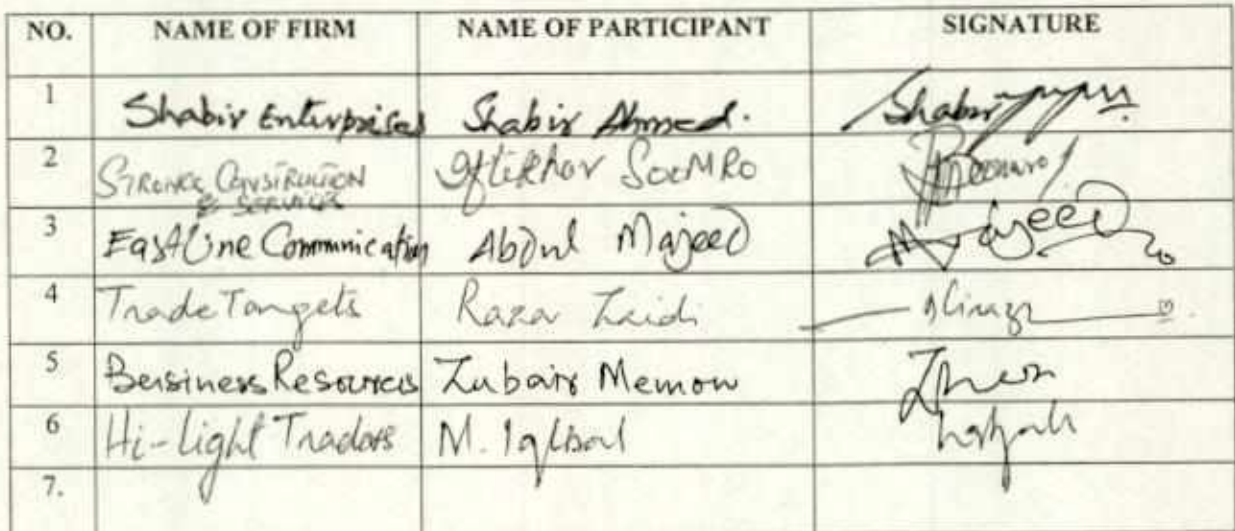 NO. NAME OF FIRM NAME OF PARTICIPANT SIGNATURE
1 Shabir Enterprises Shabir Ahmed. Shabir
2 STRONG CONSTRUCTION Iftikhar SOOMRO
& SERVICES
3 EastLine Communication Abdul Majeed Majeed
4 Trade Targets Raza Zaidi
5 Business Resources Zubair Memon
6 Hi-Light Traders M. Iqbal
7.